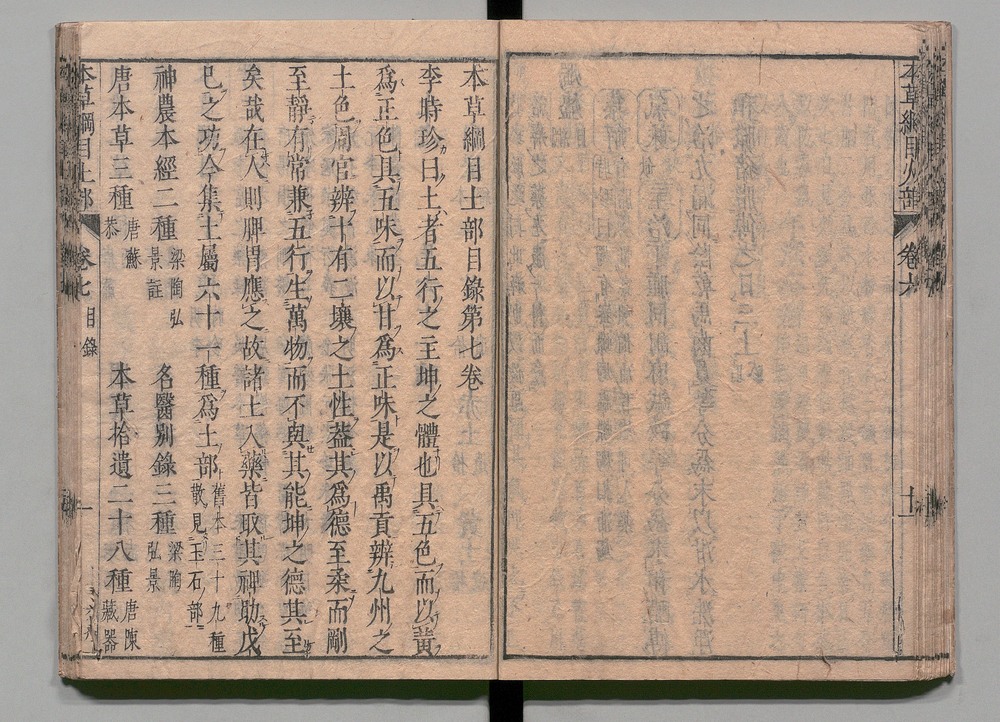 本草綱目火部
卷六
本草綱目土部目錄第七卷
李時珍曰土者五行之主坤之體也具五色而以黃
爲正色具五味而以甘爲正味是以禹貢辨九州之
土色周官辨十有二壤之土性葢其爲德至柔而剛
至靜有常兼五行生萬物而不與其能坤之德其至
矣哉在人則脾胃應之故諸土入藥皆取其裨助戊
已之功今集土屬六十一種爲土部舊本三十九種散見玉石部
神農本經二種梁陶弘景註 名醫别錄三種梁陶弘景
唐本草三種唐蘇恭 本草拾遺二十八種唐陳藏器
本草綱目土部
卷七目錄
一